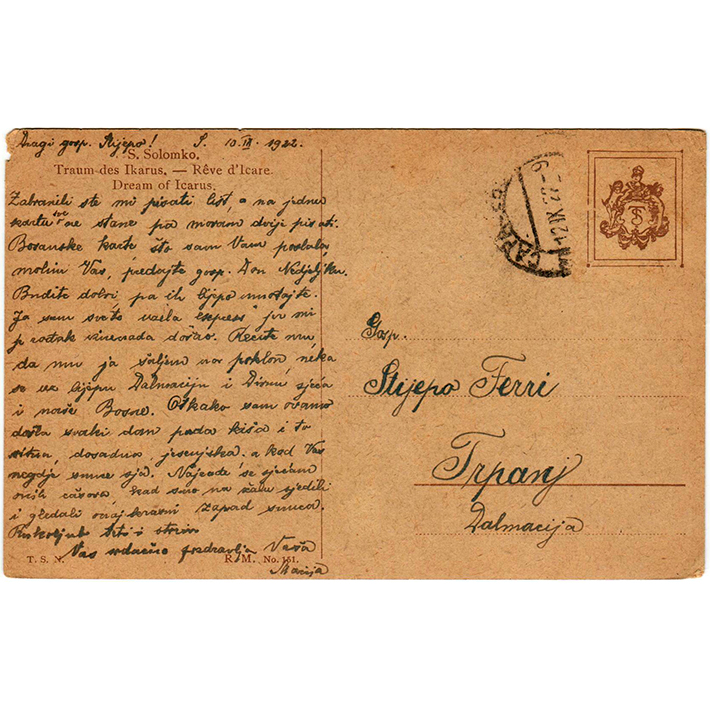 Dragi gosp. Stjepo! S. 10. IX. 1922.
S. Solomko.
Traum des Ikarus. — Rêve d'Icare.
Dream of Icarus.
Zabranili ste mi pisati list, a na jednu
kartu sve ne stane pa moram dvije pisati.
Bosanske karte što sam Vam poslala,
molim Vas, predajte gosp. Don Nedjeljku.
Budite dobri, pa ih lijepo
Ja sam sve to "express" jer mi
je Recite mu,
da mu ja šaljem na poklon neka
se uz lijepu Dalmaciju i sjeća
i naše Bosne. Otkako sam ovamo
došla svaki dan pada kiša i to
sitna, dosadna, jesenjska, a kod Vas
negdje sunce sja. Najrađe se sjećam
onih časova, kad smo na žalu sjedili
i gledali onaj krasni zapad sunca.
Vas srdačno pozdravlja Vaša
Marija
T. S. N.
R. M. No. 151.
12 IX 22 - 9
TS
Gosp.
Stijepo Ferri
Trpanj
Dalmacija